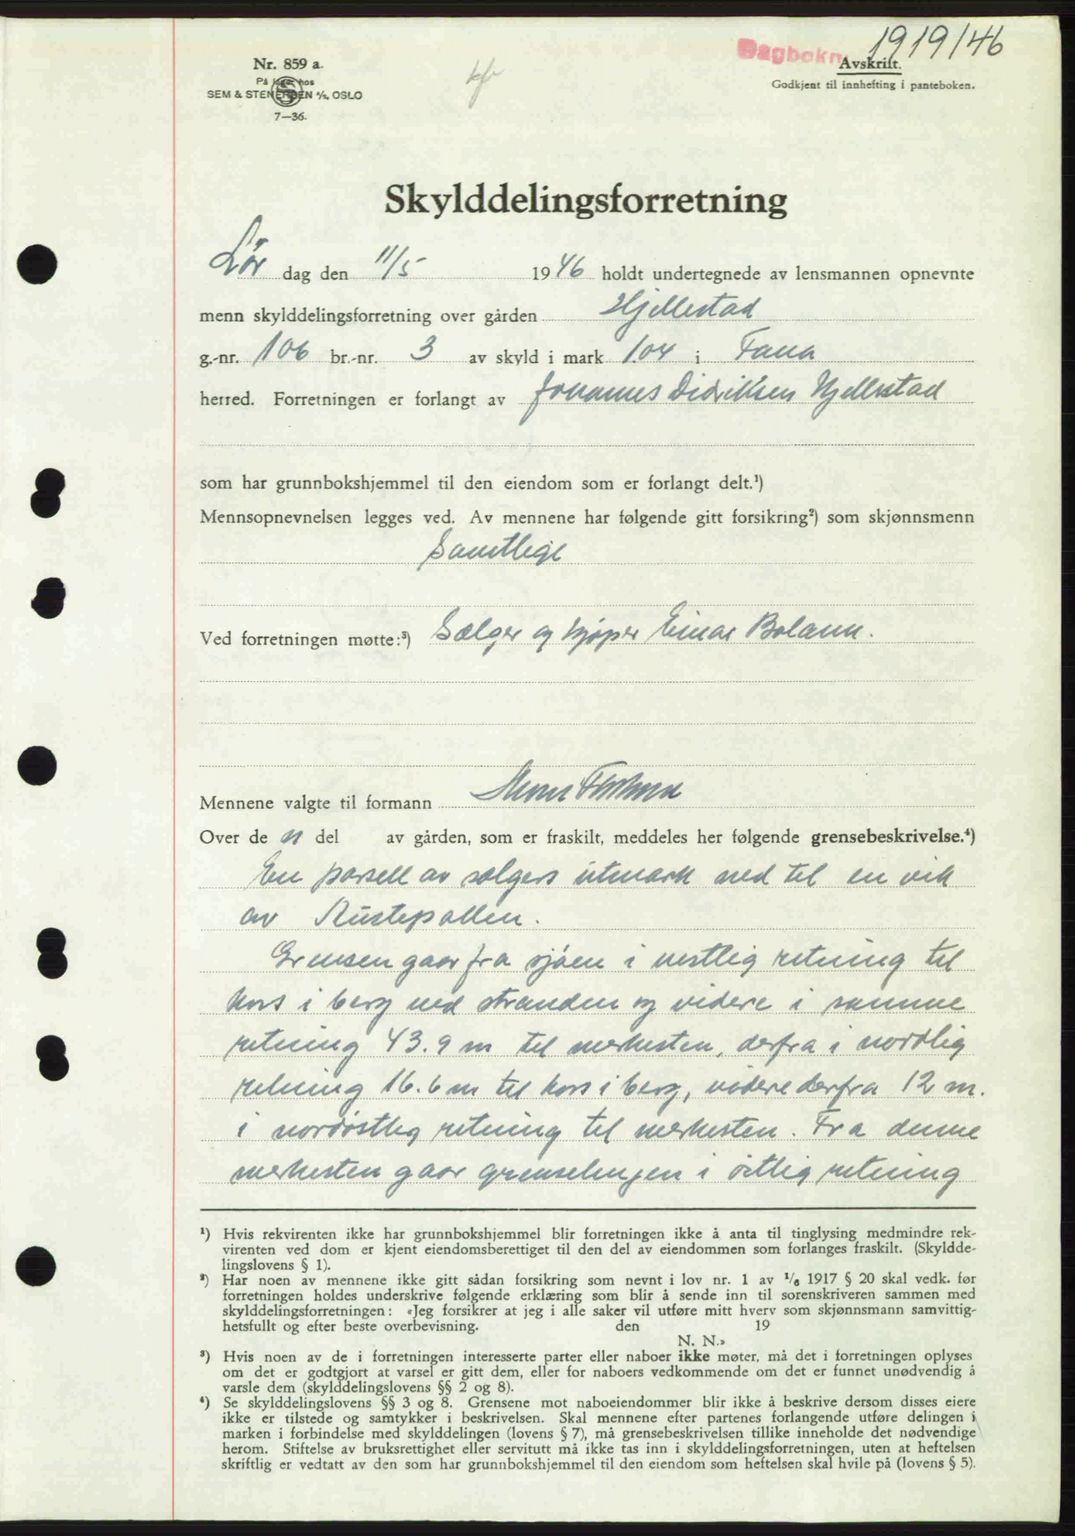 Dagbokn 1919/46
Nr. 859 a.
På lager hos
SEM & STENERSEN A/S, OSLO
7—36.
Avskrift.
Godkjent til innhefting i panteboken.
Skylddelingsforretning
Lør dag den 11/5 1946 holdt undertegnede av lensmannen opnevnte
menn skylddelingsforretning over gården Hjellestad
g.-nr. 106 br.-nr. 3 av skyld i mark 1.04 i Fana
herred. Forretningen er forlangt av Johannes Didriksen Hjellestad
som har grunnbokshjemmel til den eiendom som er forlangt delt.¹)
Mennsopnevnelsen legges ved. Av mennene har følgende gitt forsikring²) som skjønnsmenn
Samtlige
Ved forretningen møtte:³) Sælger og kjøper Einar Bolann.
Mennene valgte til formann
Over de n del av gården, som er fraskilt, meddeles her følgende grensebeskrivelse.⁴)
En parsell av sælgers utmark ned til en vik
av
Grensen gaar fra sjøen i vestlig retning til
kors i berg ved stranden og videre i samme
retning 43.9 m til merkesten, derfra i nordlig
retning 16.6 m til kors i berg, videre derfra 12 m.
i nordøstleg retning til merkesten. Fra denne
merkesten gaar grenselinjen i østlig retning
¹) Hvis rekvirenten ikke har grunnbokshjemmel blir forretningen ikke å anta til tinglysing medmindre rek-
virenten ved dom er kjent eiendomsberettiget til den del av eiendommen som forlanges fraskilt. (Skyldde-
lingslovens § 1).
²) Har noen av mennene ikke gitt sådan forsikring som nevnt i lov nr. 1 av 1/6 1917 § 20 skal vedk. før
forretningen holdes underskrive følgende erklæring som blir å sende inn til sorenskriveren sammen med
skylddelingsforretningen: «Jeg forsikrer at jeg i alle saker vil utføre mitt hverv som skjønnsmann samvittig-
hetsfullt og efter beste overbevisning. den 19
N. N.»
³) Hvis noen av de i forretningen interesserte parter eller naboer ikke møter, må det i forretningen oplyses
om det er godtgjort at varsel er gitt dem, eller for naboers vedkommende om det er funnet unødvendig å
varsle dem (skylddelingslovens §§ 2 og 8).
⁴) Se skylddelingslovens §§ 3 og 8. Grensene mot naboeiendommer blir ikke å beskrive dersom disses eiere
ikke er tilstede og samtykker i beskrivelsen. Skal mennene efter partenes forlangende utføre delingen i
marken i forbindelse med skylddelingen (lovens § 7), må grensebeskrivelsen tillike inneholde det nødvendige
herom. Stiftelse av bruksrettighet eller servitutt må ikke tas inn i skylddelingsforretningen, uten at heftelsen
skriftlig er vedtatt av den som har grunnbokshjemmel til den eiendom som heftelsen skal hvile på (lovens § 5).